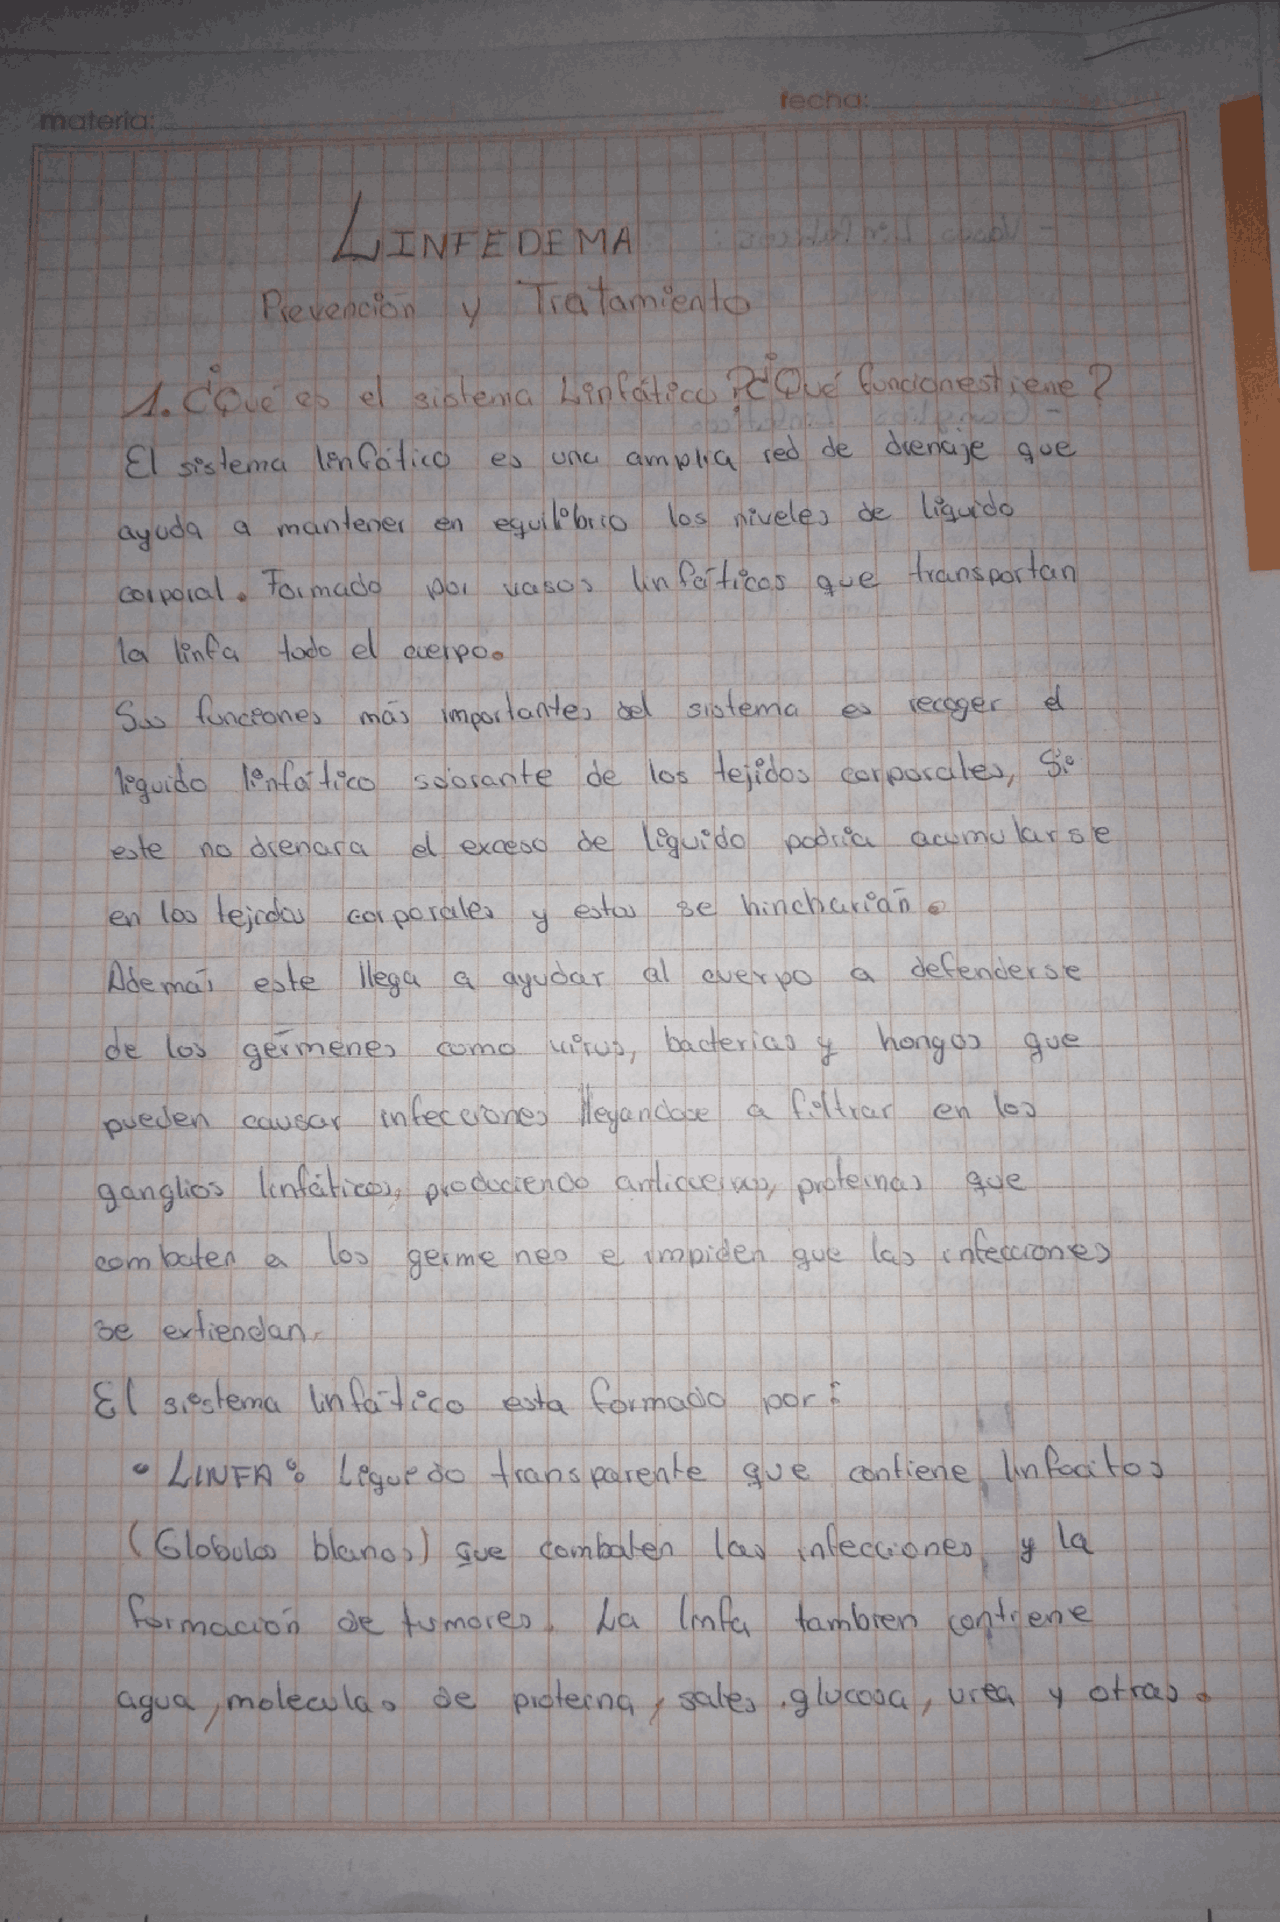 materia:
fecha:
LINFEDEMA
Prevención y Tratamiento
1. ¿Qué es el sistema Linfático? ¿Qué funciones tiene?
El sistema linfático es una amplia red de drenaje que
ayuda a mantener en equilibrio los niveles de líquido
corporal. Formado por vasos linfáticos que transportan
la linfa todo el cuerpo.
Sus funciones más importantes del sistema es recoger el
líquido linfático sobrante de los tejidos corporales, Si
este no drenara el exceso de líquido podría acumularse
en los tejidos corporales y estos se hincharían.
Además este llega a ayudar al cuerpo a defenderse
de los gérmenes como virus, bacterias y hongos que
pueden causar infecciones llegandose a filtrar en los
ganglios linfáticos, produciendo proteinas que
combaten a los germenes e impiden que las infecciones
se extiendan.
El sistema linfático esta formado por:
• LINFA: Liquido transparente que contiene linfocitos
(Globulos blancos) que combaten las infecciones y la
formación de tumores. La linfa tambien contiene
agua, moleculas de proteina, sales, glucosa, urea y otras.